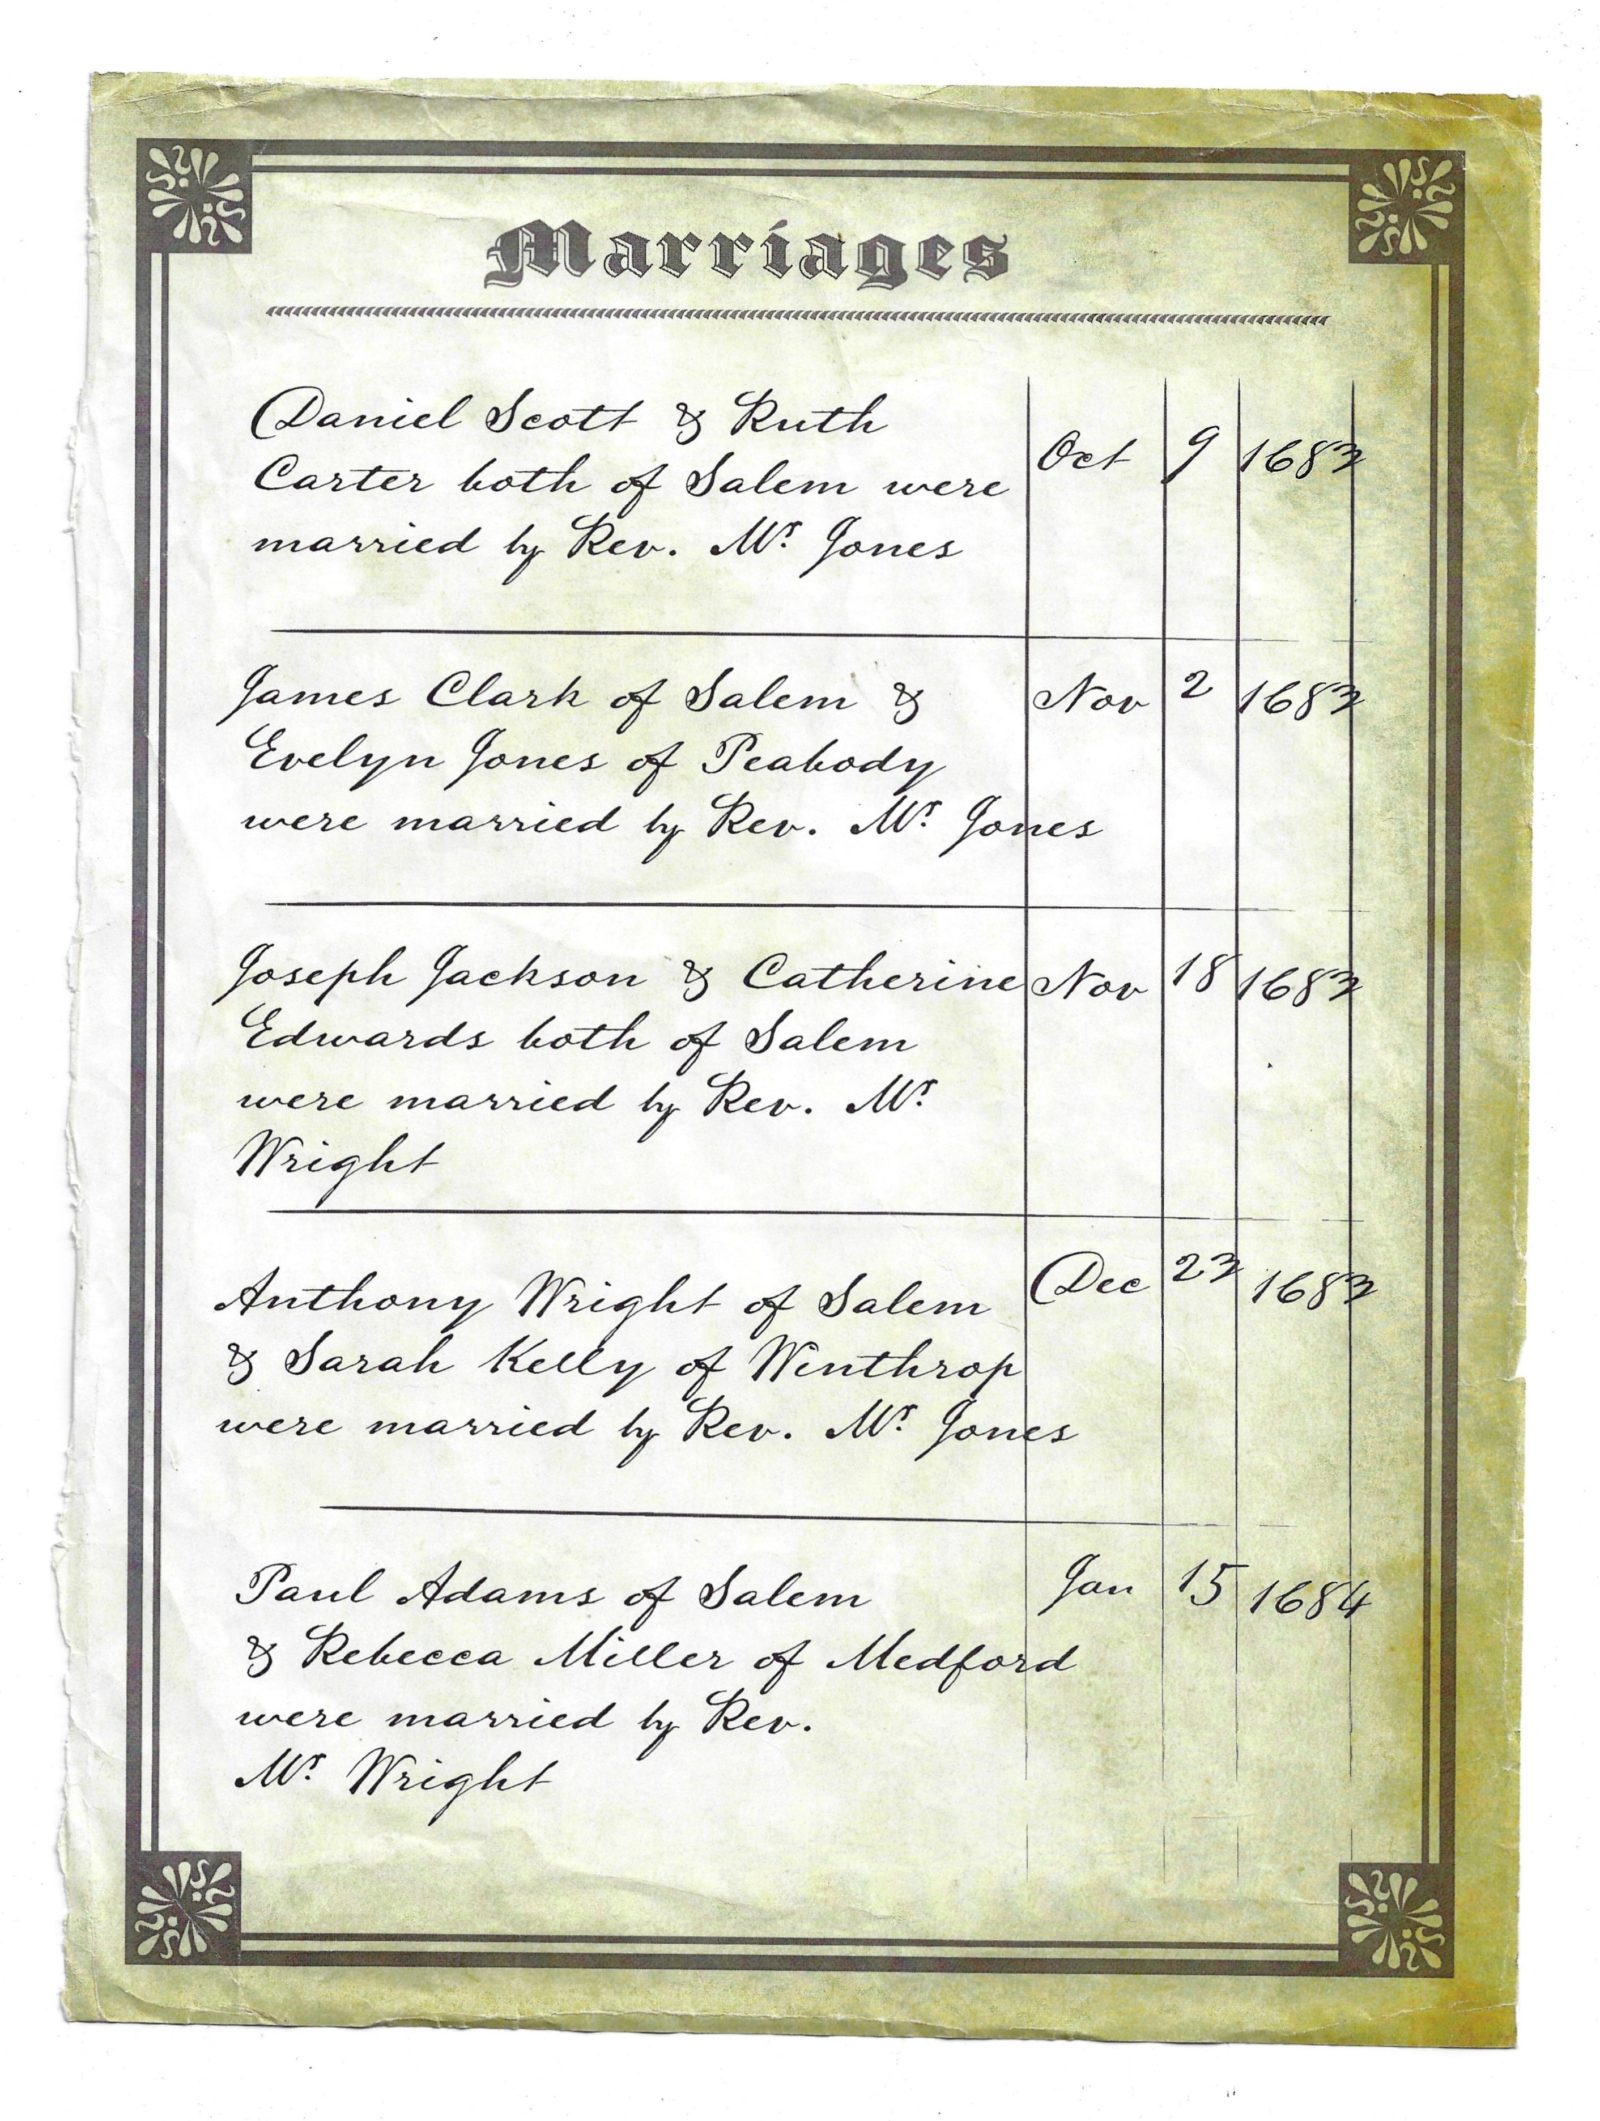 Marriages
Daniel Scott & Ruth
Carter both of Salem were
married by Rev. Mr. Jones
Oct 9 1683
James Clark of Salem &
Evelyn Jones of Peabody
were married by Rev. Mr. Jones
Nov 2 1683
Joseph Jackson & Catherine
Edwards both of Salem
were married by Rev. Mr.
Wright
Nov 18 1683
Anthony Wright of Salem
& Sarah Kelly of Winthrop
were married by Rev. Mr. Jones
Dec 23 1683
Paul Adams of Salem
& Rebecca Miller of Medford
were married by Rev.
Mr. Wright
Jan 15 1684